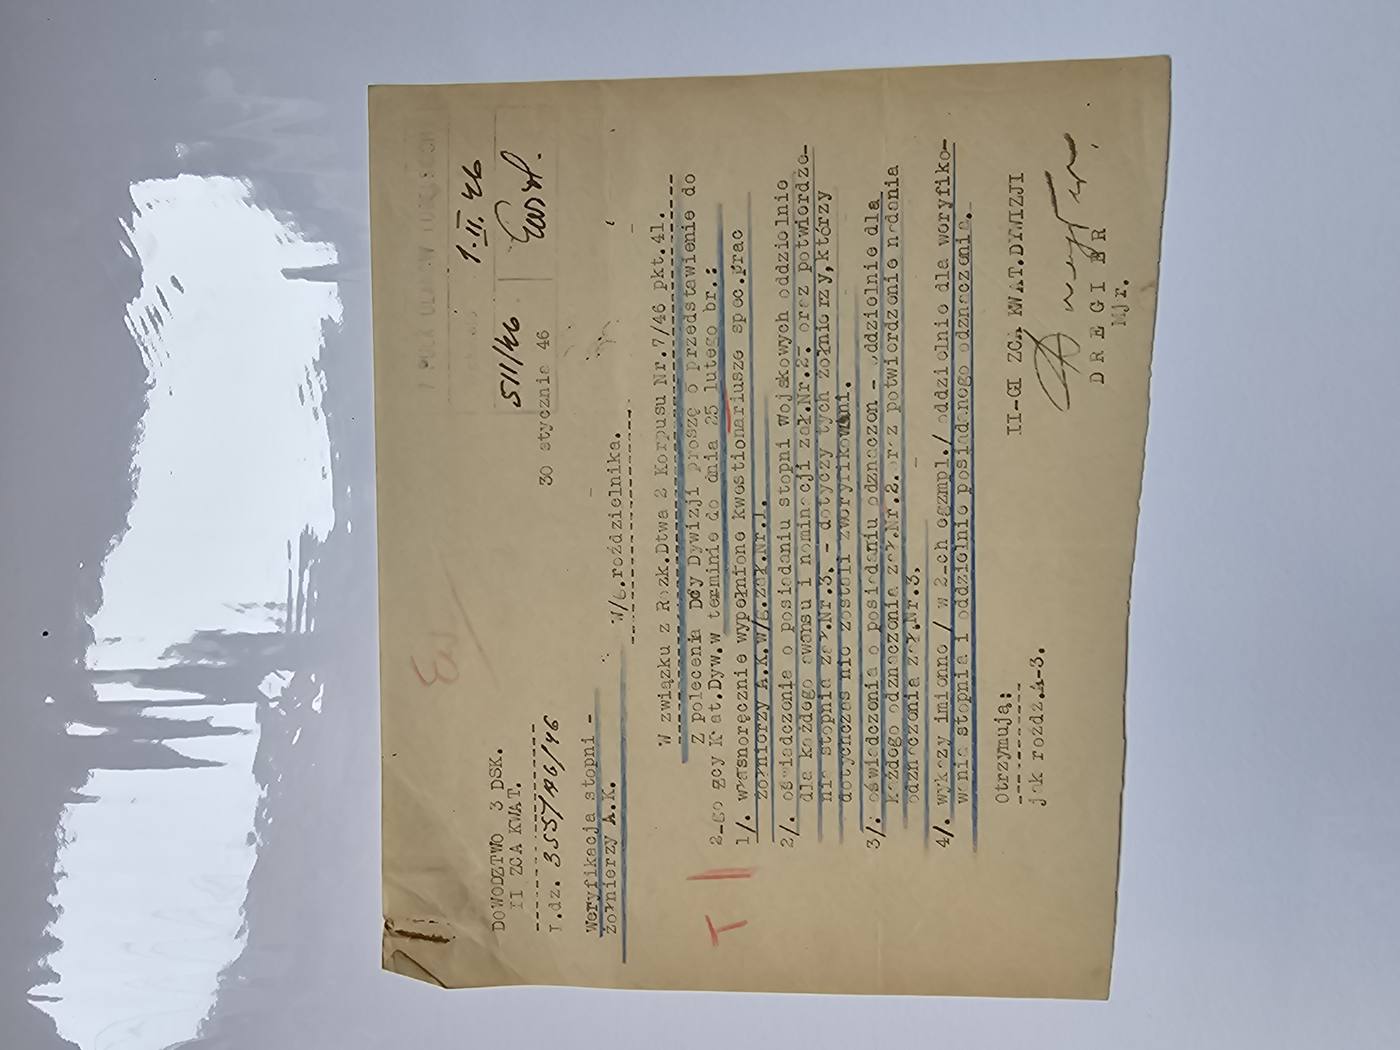 7 PUŁK UŁANÓW LUBELSKICH
1.II.46
511/46
DOWODZTWO 3 DSK.
II ZCA KWAT.
L.dz. 3557/AG/46
30 stycznia 46
Weryfikacja stopni -
żołnierzy A.K.
W/g.rozdzielnika.
W związku z Rozk.Dtwa 2 Korpusu Nr.7/46 pkt.41.
Z polecenia Dcy Dywizji proszę o przedstawienie do
2-go zcy Kwat.Dyw.w terminie do dnia 25 lutego br.:
1/. własnoręcznie wypełnione kwestionariusze spec.prac
żołnierzy A.K.w/g.zał.Nr.1.
2/. oświadczenie o posiadaniu stopni wojskowych oddzielnie
dla każdego awansu i nominacji zał.Nr.2- oraz potwierdze-
nie stopnia zał.Nr.3. - dotyczy tych żołnierzy,którzy
dotychczas nie zostali zweryfikowani.
3/: oświadczenia o posiadaniu odznaczen - oddzielnie dla
każdego odznaczenia zał.Nr.2. oraz potwierdzenie nadania
odznaczenia zał.Nr.3.
4/. wykazy imienne / w 2-ch egzmpl./ oddzielnie dla weryfiko-
wania stopnia i oddzielnie posiadanego odznaczenia.
II-GI ZCA KWAT.DYWIZJI
DREGIER
Mjr.
Otrzymują:
jak rozdz.A-3.
T